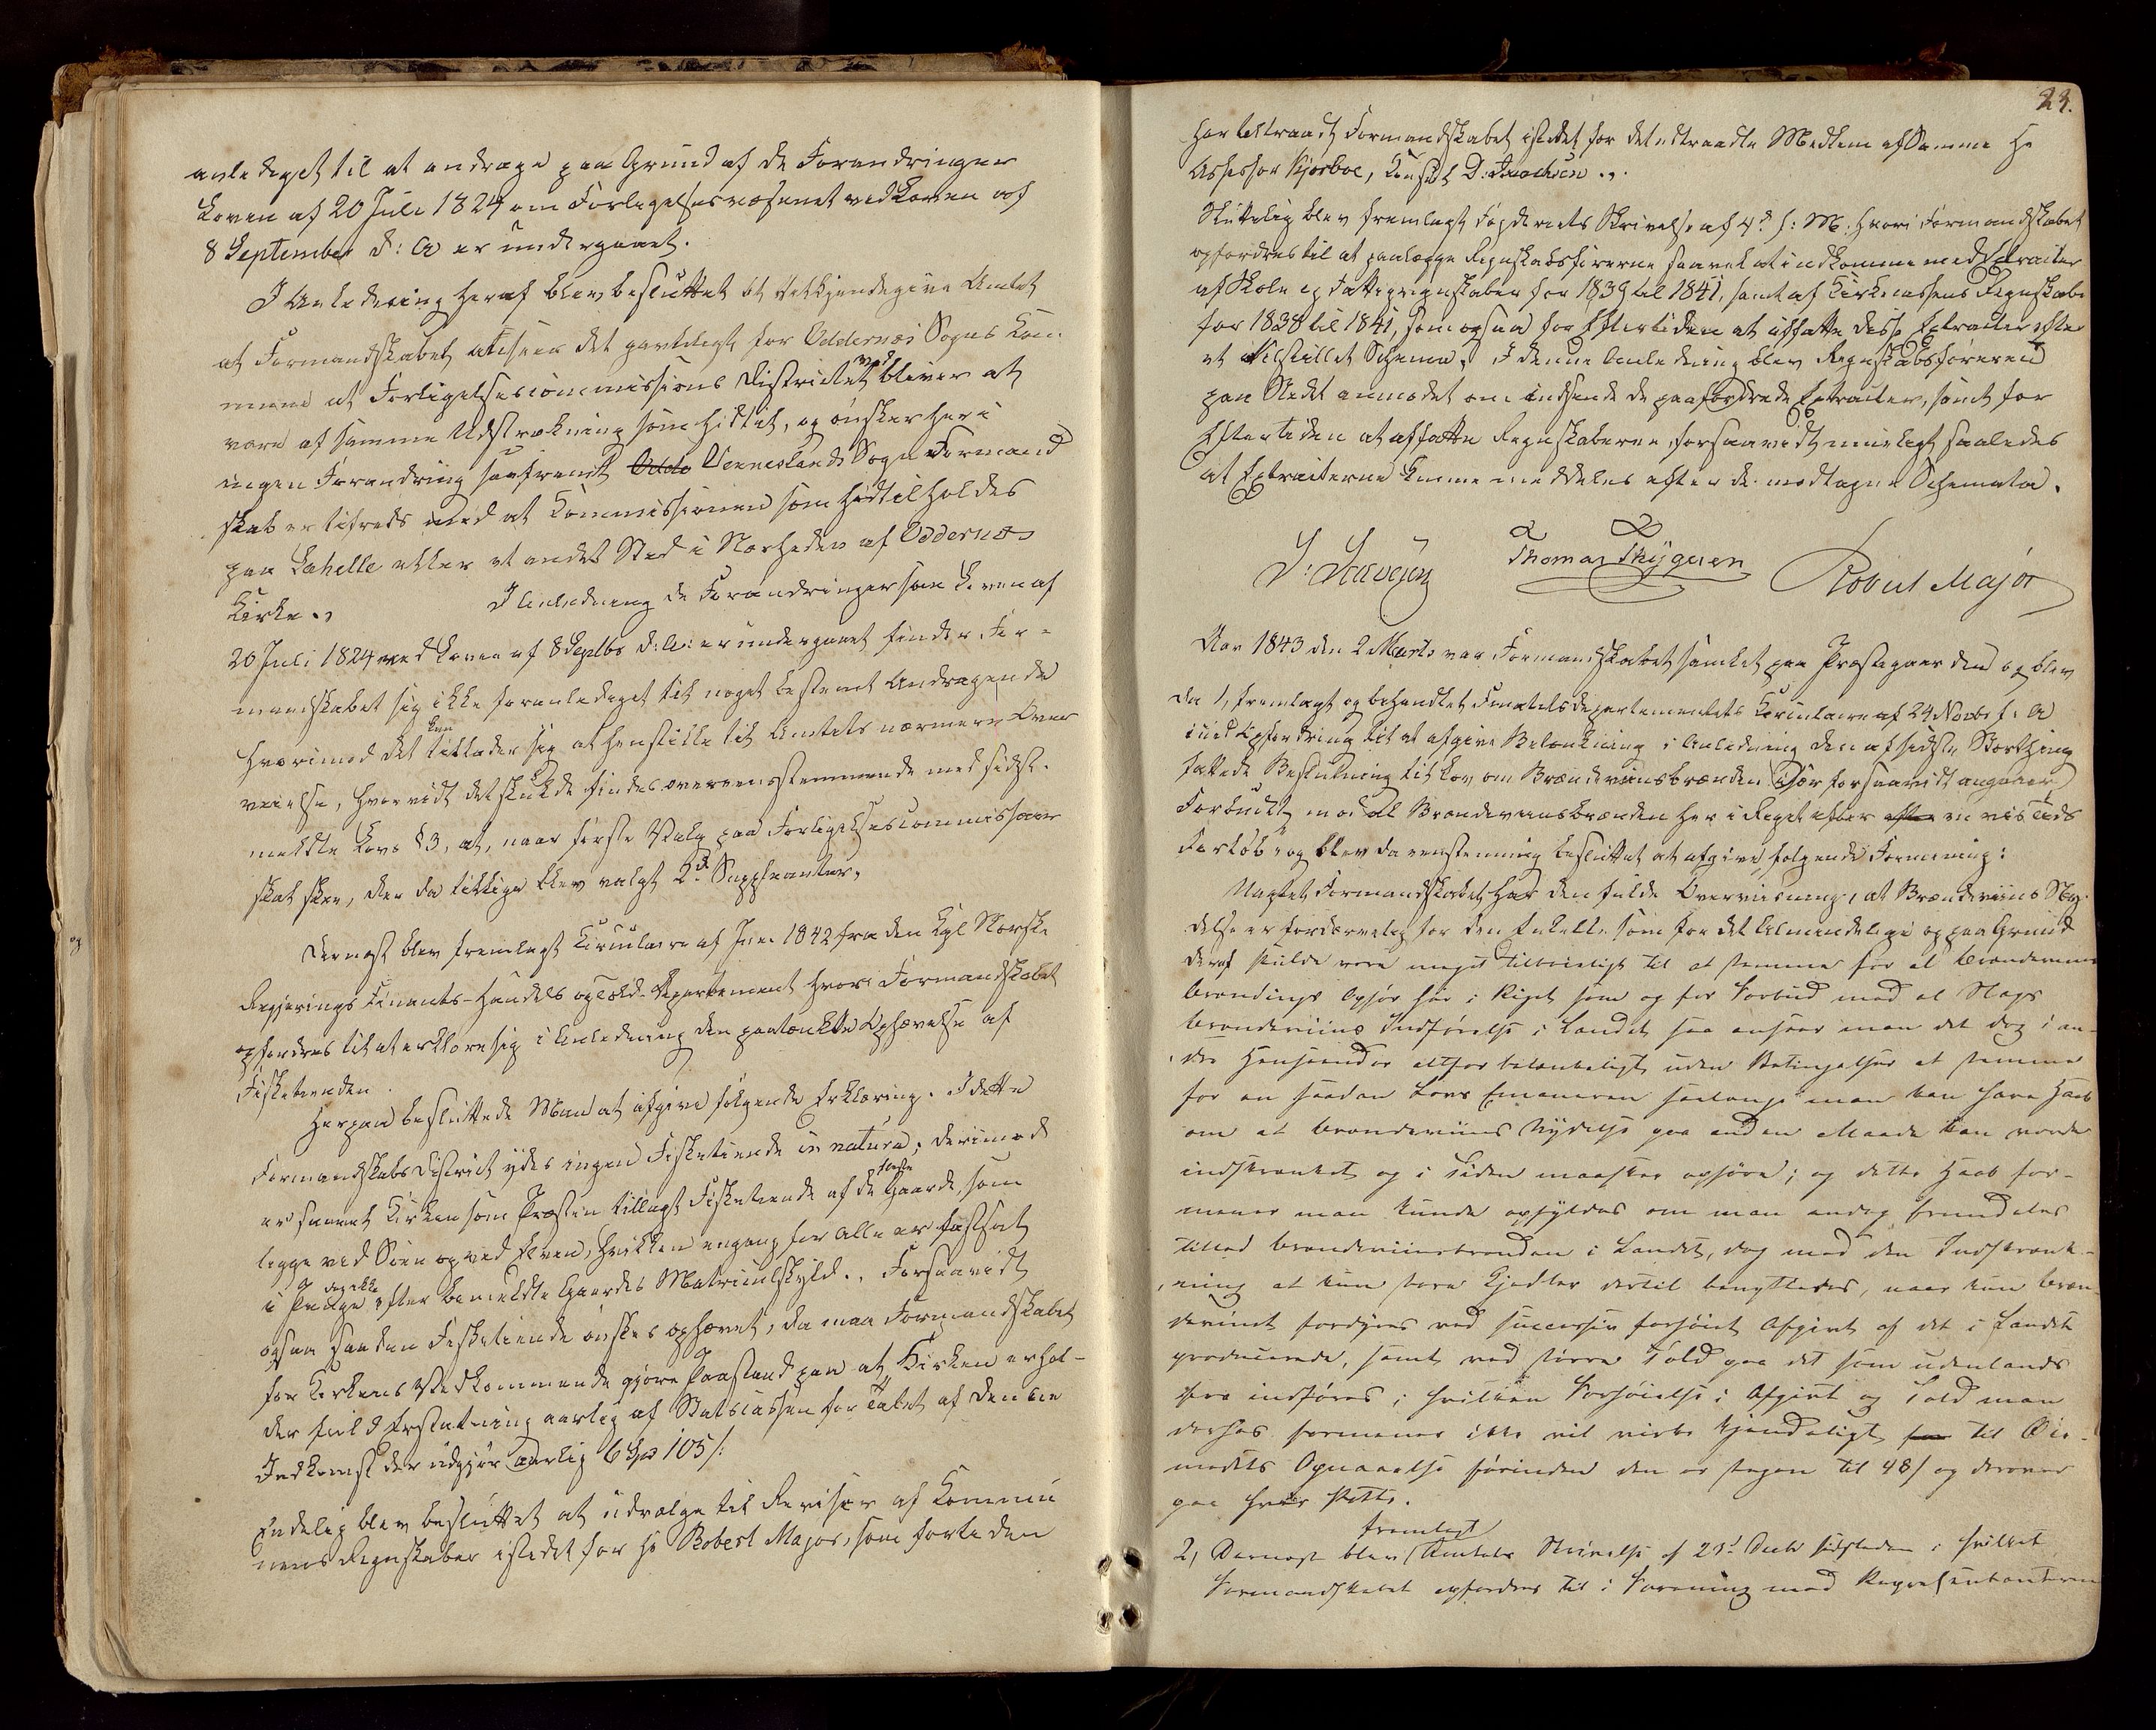 anlediget til at andrage paa Grund af de Forandringer
Loven af 20 Juli 1824 om Forligelsesvæsenet ved Loven af
8 September d: A er undergaaet.
I Anledning heraf blev besluttet at tilkjendegive Amtet
at Formandskabet ansees det gavnligst for Oddernæs Sogns Kom¬
mune at Forligelsescommissions Districtet ved bliver at
være af samme Udstrækning som hidtil, og ønsker heri
ingen Forandring saafremt Odde Venneslands Sogn Formand
skab er tilfreds med at Commissionen som hidtil holdes
paa Lahelle eller et andet Sted i Nærheden af Oddernæs
Kirke.,
I Anledning de Forandringer som Loven af
20 Juli 1824 ved Loven af 8 Septbr d: A: er undergaaet finder For¬
mandskabet sig ikke foranlediget til noget bestemt Andragende
hvorimod det kun tillader sig at henstille til Amtets nærmere Over
veielse, hvorvidt det skulde findes overeensstemmende med sidst¬
meldte Lovs § 3, at, naar første Valg paa Forligelsescommissair
skal skee, der da tillige blev valgt 2de Suppleanter.
Dernæst blev fremlagt Circulaire af Juni 1842 fra den Kgl Norske
Regjerings Finants-Handels og Told-Departement hvori Formandskabet
opfordres til at erklære sig i Anledning den paatænkte Ophævelse af
Fisketienden.
Herpaa besluttede Man at afgive følgende Erklæring. I dette
Formandskabs District ydes ingen Fisketiende in natura; derimod
er saavel Kirken som Præsten tillagt Fisketiende af de fleste Gaarde, som
ligge ved Søen og ved Elven, hvilken engang for Alle er fastsat
i Penge og dog ikke efter bemeldte Gaardes Matriculskyld., Forsaavidt
ogsaa saadan Fisketiende ønskes ophævet, da maa Formandskabet
for Kirkens Vedkommende gjøre Paastand paa at Kirken erhol¬
der fuld Erstatning aarlig af Statscassen for Tabet af denne
Indkomst der udgjør aarlig 6 Spd 105 /:
Endelig blev besluttet at udvælge til Revisor af Kommu
nens Regnskaber istedet for Hr Robert Major, som for tiden
23.
har tiltraadt Formandskabet istedet for det udtraadte Medlem af Samme Hr
Assessor Kjørboe, Consul D: Isachsen.,.
Sluttelig blev fremlagt Fogderiets Skrivelse af 4de f: M. hvori Formandskabet
opfordres til at paalægge Regnskabsførerne saavel at indkomme med Extracter
af Skole og Fattigregnskaber for 1839 til 1841, samt af Kirkecassens Regnskabe
for 1838 til 1841, som ogsaa for Eftertiden at affatte disse Extracter efter
et tilstillet Schema. I denne Anledning blev Regnskabsføreren
paa Stedet anmodet om indsende de paafordrede Extracter, samt for
Eftertiden at affatte Regnskaberne, forsaavidt mueligt saaledes
at Extracterne kunne meddeles efter de modtagne Schemata.
Thomas Thygesen
Robert Major
Aar 1843 den 2 Marts var Formandskabet samlet paa Præstegaarden og blev
da 1, fremlagt og behandlet Finantsdepartementets Circulaire af 24 Novbr f: A
med Opfordring til at afgive Betænkning i Anledning den af sidste Storthing
fattede Beslutning til Lov om Brændeviinsbrænden især forsaavidt angaaer
Forbudt mod al Brændeviinsbrænden her i Riget efter efter en vis Tids
Forløb, og blev da eenstemmig besluttet at afgive følgende Formening:
Uagtet Formandskabet har den fulde Overviisning, at Brændeviins Ny¬
delse er fordærvelig for den Enkelte som for det Almindelige og paa Grund
deraf skulde være meget tilbøieligt til at stemme for al Brændeviins
brændings Ophør her i Riget som og for Forbud mod al Slags
brændeviins Indførelse i Landet saa anseer man det dog i an¬
dre Henseender altfor betænkeligt uden Betingelser at stemme
for en saadan Lovs Emaneren saalænge man kan have Haab
om at brændeviins Nydelse paa anden Maade kan vorde
indskrænket og i Tiden maaskee ophøre; og dette Haab for¬
mener man kunde opfyldes om man endog fremdeles
tillod brændeviinsbrænden i Landet, dog med den Indskrænk¬
ning at kun store Kjedler dertil benyttedes, naar kun bræn
deviinet fordyres ved successiv forhøiet Afgivt af det i Landet
producerede, samt ved større Told paa det som udenlands
fra indføres; hvilken Forhøielse i Afgivt og Told man
derhos formener ikke vil virke kjendeligt for til Øie¬
medets Opnaaelse førinden den er stegen til 48 / og derover
paa hver Potte.
2, Dernæst blev fremlagt Amtets Skrivelse af 29de Decbr sidstleden i hvilket
Formandskabet opfordres til i Forening med Repræsentanterne